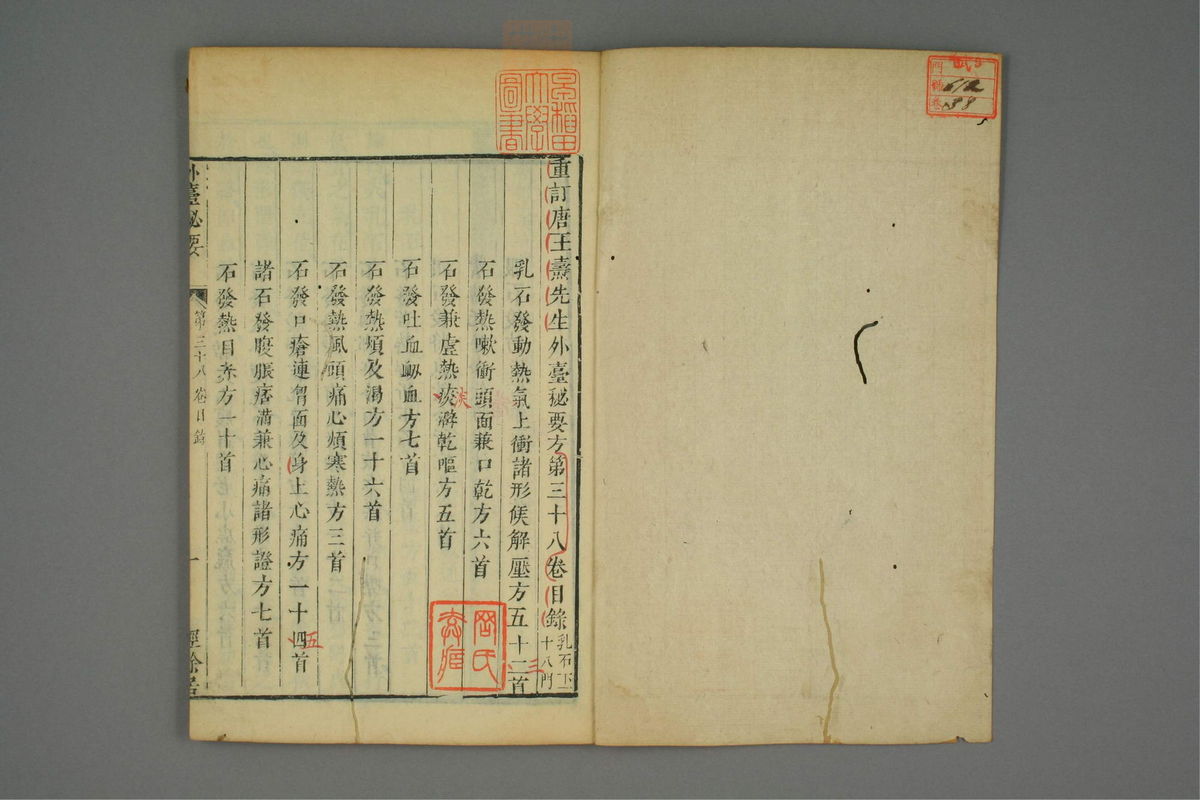 重訂唐王燾先生外臺秘要方第三十八卷目錄 乳石下一十八門
乳石發動熱氣上衝諸形候解壓方五十二首
三
石發熱嗽衝頭面兼口乾方六首
石發兼虛熱痰澼乾嘔方五首
石發吐血衂血方七首
石發熱煩及渴方一十六首
石發熱風頭痛心煩寒熱方三首
石發口瘡連胷面及身上心痛方一十四首
五
諸石發腹脹痞滿兼心痛諸形證方七首
石發熱目赤方一十首
外臺秘要
第三十八卷目錄
一
經餘居
早稻田大學圖書